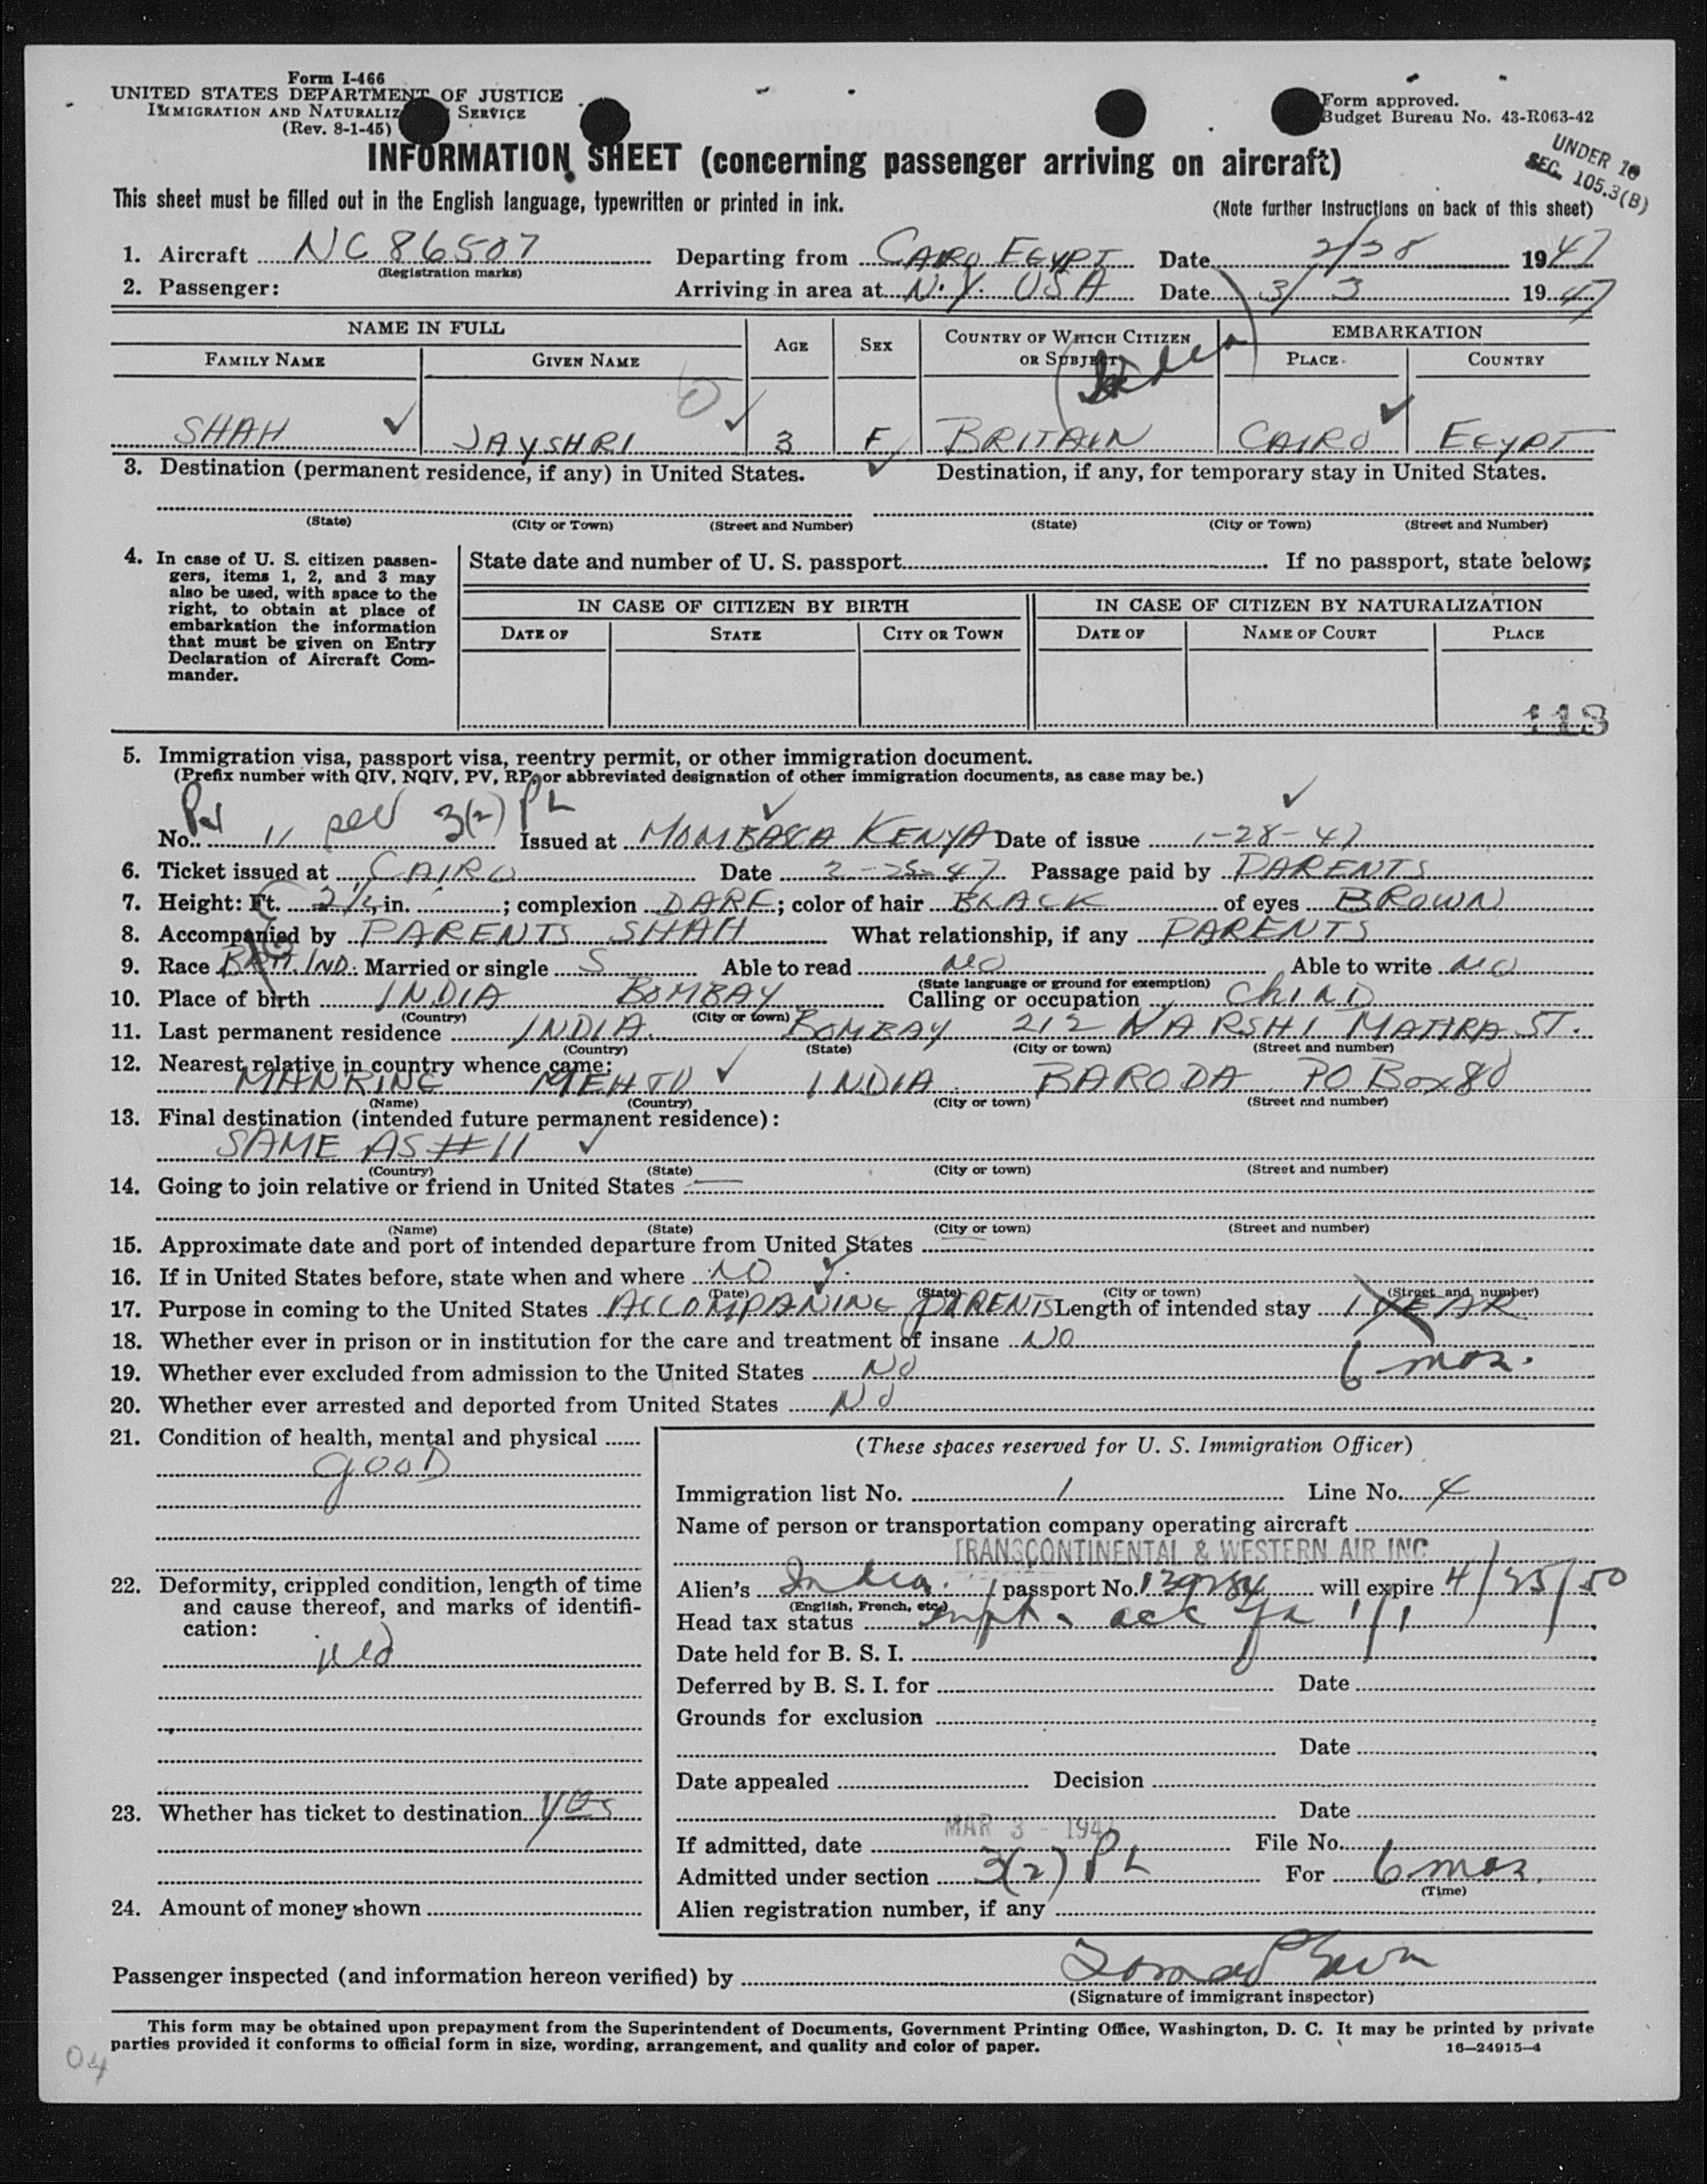 Form I-466
UNITED STATES DEPARTMENT OF JUSTICE
IMMIGRATION AND NATURALIZ SERVICE
(Rev. 8-1-45)
Form approved.
Budget Bureau No. 43-R063-42
UNDER 16
SEC. 105.3(B)
INFORMATION SHEET (concerning passenger arriving on aircraft)
This sheet must be filled out in the English language, typewritten or printed in ink.
(Note further Instructions on back of this sheet)
1. Aircraft NC 86507 Departing from CAIRO EGYPT Date 2/28 1947
(Registration marks)
2. Passenger: Arriving in area at N.Y. USA Date 3/3 1947
NAME IN FULL AGE SEX COUNTRY OF WHICH CITIZEN OR SUBJECT EMBARKATION
FAMILY NAME GIVEN NAME PLACE COUNTRY
SHAH JAYSHRI 3 F BRITAIN CAIRO EGYPT
3. Destination (permanent residence, if any) in United States. Destination, if any, for temporary stay in United States.
(State) (City or Town) (Street and Number) (State) (City or Town) (Street and Number)
4. In case of U. S. citizen passengers, items 1, 2, and 3 may also be used, with space to the right, to obtain at place of embarkation the information that must be given on Entry Declaration of Aircraft Commander.
State date and number of U. S. passport If no passport, state below:
IN CASE OF CITIZEN BY BIRTH IN CASE OF CITIZEN BY NATURALIZATION
DATE OF STATE CITY OR TOWN DATE OF NAME OF COURT PLACE
113
5. Immigration visa, passport visa, reentry permit, or other immigration document.
(Prefix number with QIV, NQIV, PV, RP, or abbreviated designation of other immigration documents, as case may be.)
3(2) PL
No. 11 Issued at MOMBASA KENYA Date of issue 1-28-47
6. Ticket issued at CAIRO Date 2-25-47 Passage paid by PARENTS
7. Height: Ft. 2 1/2 in. ; complexion DARK; color of hair BLACK of eyes BROWN
8. Accompanied by PARENTS SHAH What relationship, if any PARENTS
9. Race IND. Married or single S Able to read NO Able to write NO
(State language or ground for exemption)
10. Place of birth INDIA BOMBAY Calling or occupation CHILD
(Country) (City or town)
11. Last permanent residence INDIA BOMBAY 212 NARSHI MATHRA ST.
(Country) (State) (City or town) (Street and number)
12. Nearest relative in country whence came:
MEHTU INDIA BARODA PO BOX 80
(Name) (Country) (City or town) (Street and number)
13. Final destination (intended future permanent residence):
SAME AS #11
(Country) (State) (City or town) (Street and number)
14. Going to join relative or friend in United States —
(Name) (State) (City or town) (Street and number)
15. Approximate date and port of intended departure from United States
16. If in United States before, state when and where NO
(Date) (State) (City or town) (Street and number)
17. Purpose in coming to the United States ACCOMPANING PARENTS Length of intended stay 1 YEAR
18. Whether ever in prison or in institution for the care and treatment of insane NO
6 mos.
19. Whether ever excluded from admission to the United States NO
20. Whether ever arrested and deported from United States NO
21. Condition of health, mental and physical
GOOD
22. Deformity, crippled condition, length of time and cause thereof, and marks of identification:
23. Whether has ticket to destination YES
24. Amount of money shown
(These spaces reserved for U. S. Immigration Officer)
Immigration list No. 1 Line No. 4
Name of person or transportation company operating aircraft
TRANSCONTINENTAL & WESTERN AIR INC
Alien's India passport No. will expire 4/25/50
(English, French, etc.)
Head tax status
Date held for B. S. I.
Deferred by B. S. I. for Date
Grounds for exclusion
Date
Date appealed Decision
Date
If admitted, date MAR 3 - 194 File No.
Admitted under section 3(2) PL For 6 mos.
(Time)
Alien registration number, if any
Passenger inspected (and information hereon verified) by
(Signature of immigrant inspector)
This form may be obtained upon prepayment from the Superintendent of Documents, Government Printing Office, Washington, D. C. It may be printed by private
parties provided it conforms to official form in size, wording, arrangement, and quality and color of paper.
16—24915-4
04